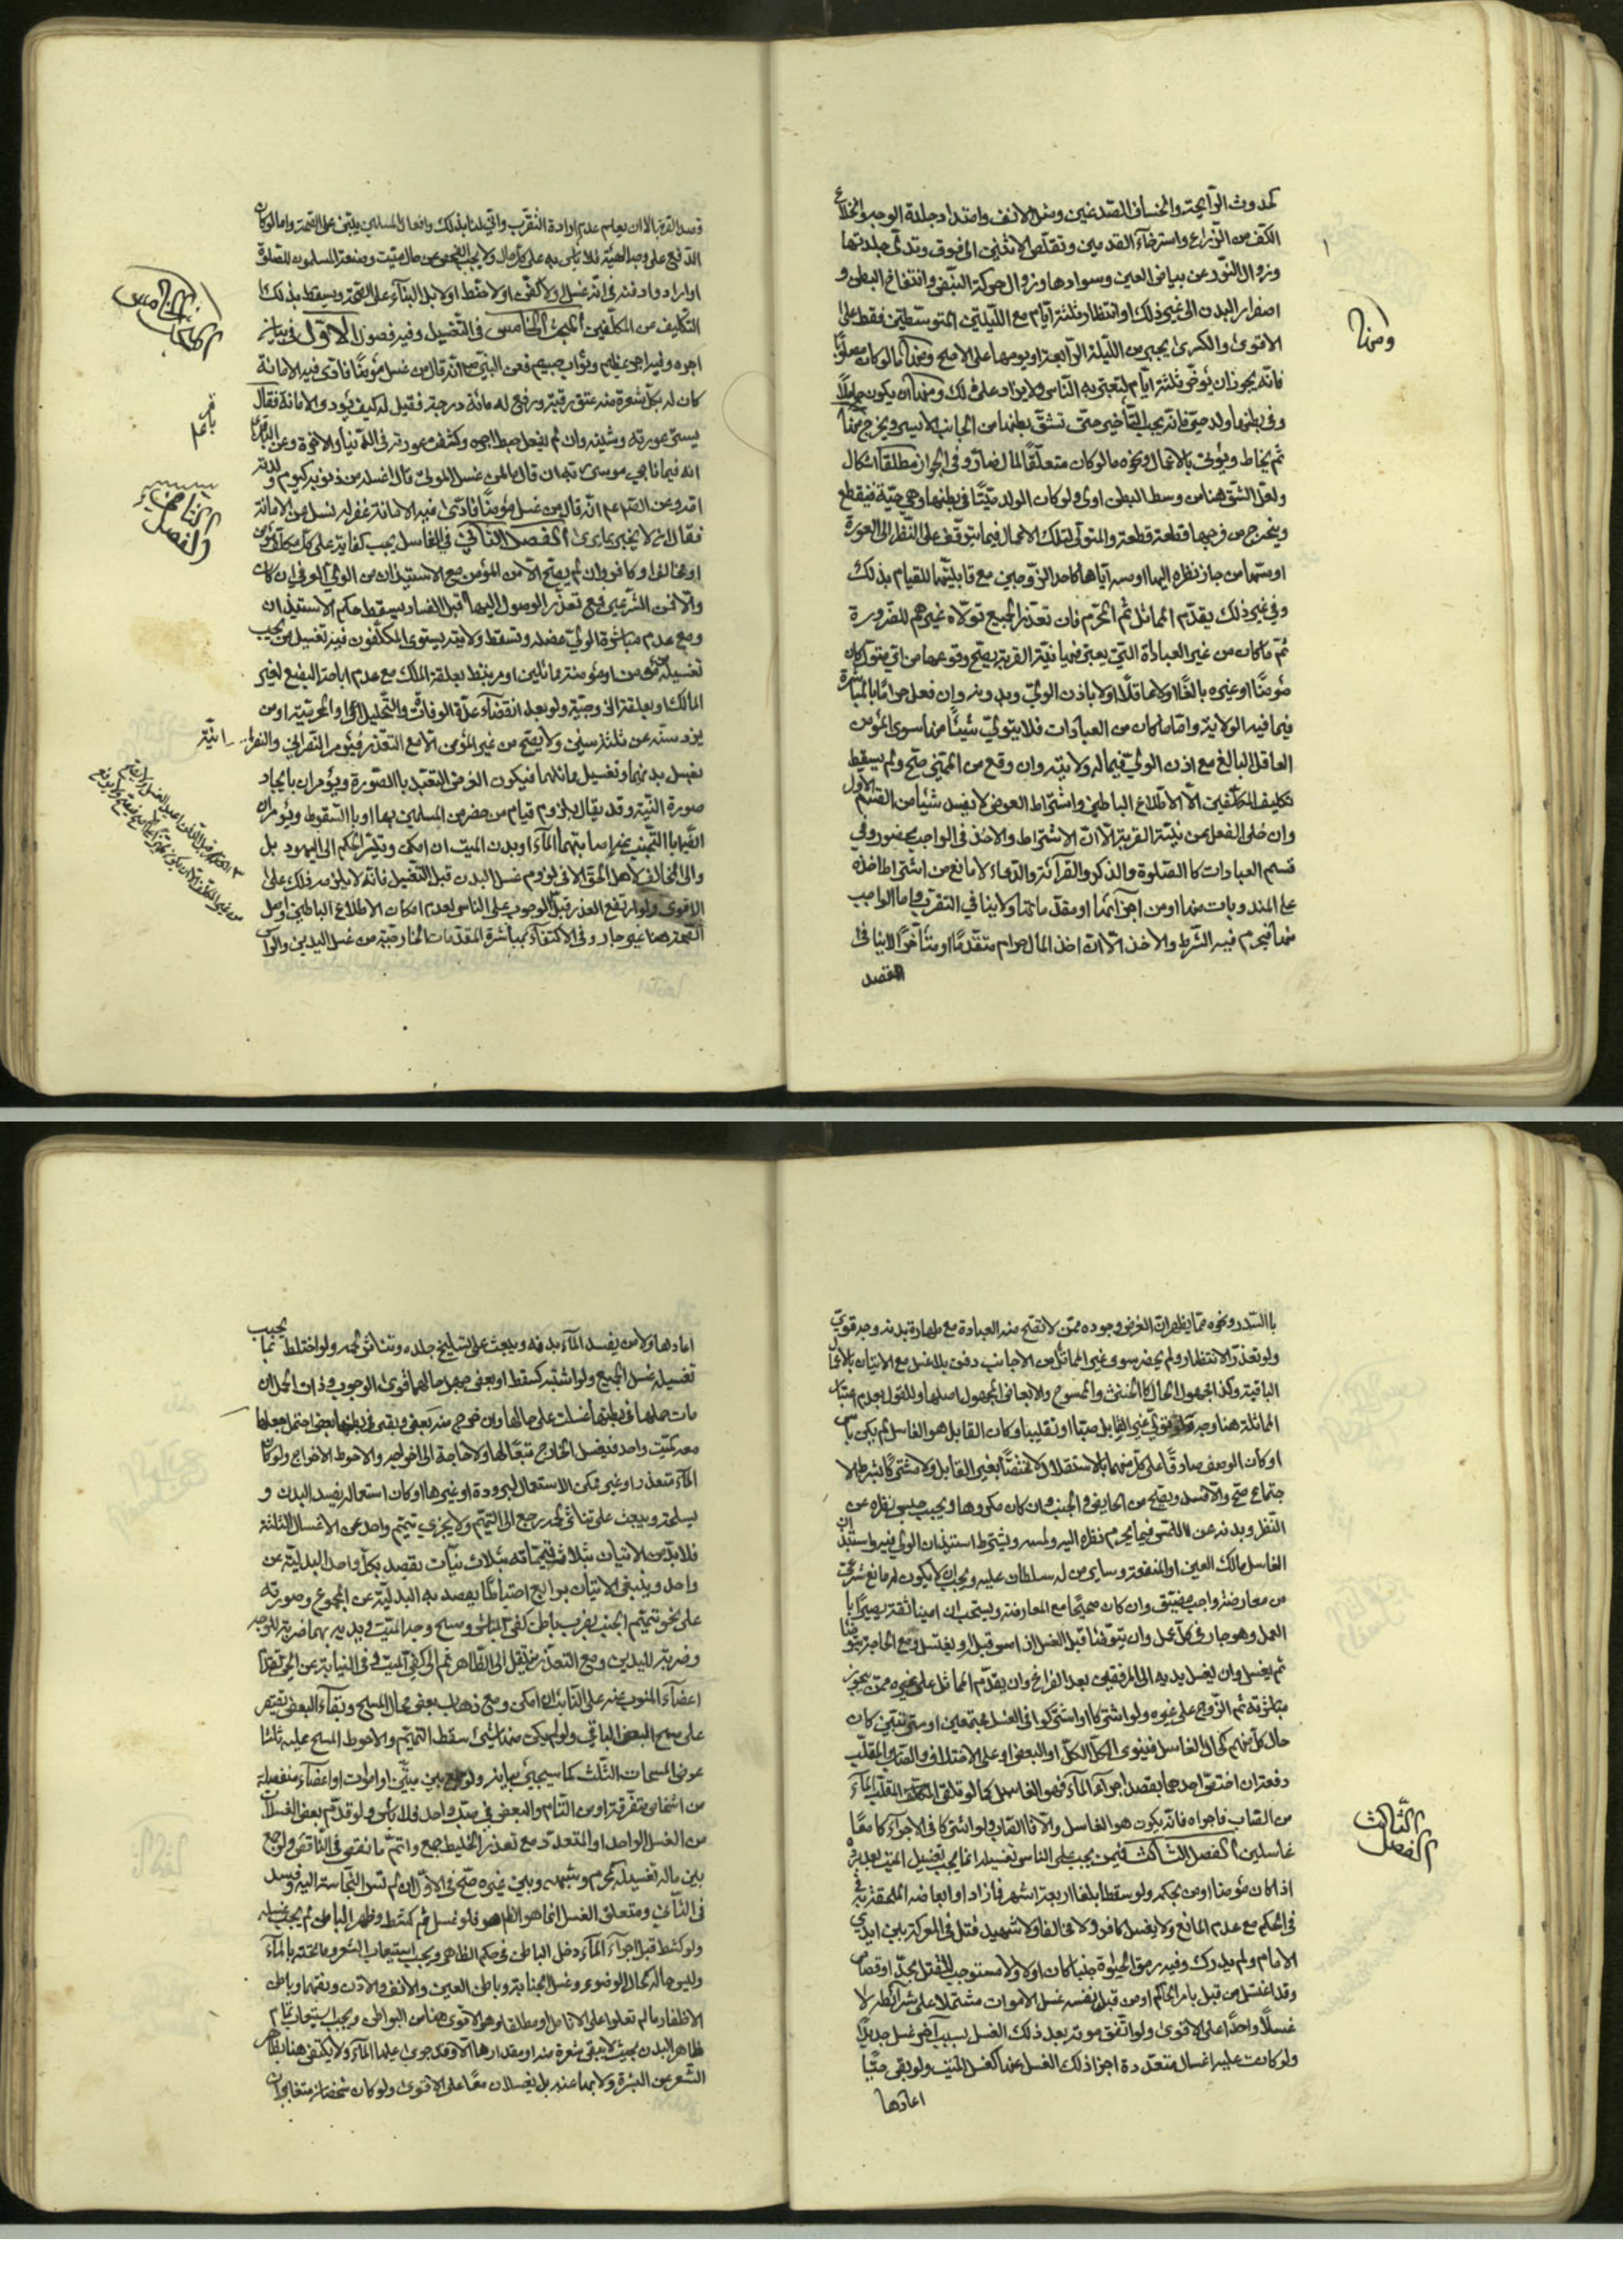 كحدوث الرائحة وانخساف الصدغين وميل الانف وامتداد جلدة الوجه وانخلاع
الكف من الذراع واسترخاء القدمين وتقلص الانثيين الى فوق وتدلى جلدتها
وزوال النور عن بياض العين وسوادها وزوال حركة النبض وانتفاخ البطن و
اصفرار البدن الى غير ذلك او انتظار ثلثة ايام مع الليلتين المتوسطتين فقط على
الاقوى والكسرى يجبر من الليلة الرابعة او يومها على الاصح ومنها ما لو كان مصلوبا
فانه يجوز ان يؤخر ثلثة ايام لتعتبر به الناس ولا يزاد على ذلك ومنها ان يكون حاملا
وفي بطنها ولد حي فانه يجب التأخير حتى تشق بطنها من الجانب الايسر ويخرج منها
ثم يخاط ويؤتى بالاعمال ونحوه ما لو كان متعلقا لمال ضار وفي الجواز مطلقا اشكال
ولعل الشق هنا من وسط البطن اولى ولو كان الولد ميتا في بطنها وهي حية فيقطع
ويخرج من فرجها قطعة قطعة والمتولى لتلك الاعمال فيما يتوقف على النظر الى العورة
او مسها من جاز نظره اليها او مسه اياها كاحد الزوجين مع قابليتهما للقيام بذلك
وفي غير ذلك يقدم المماثل ثم المحرم فان تعذر الجميع تولاه غيرهم للضرورة
ثم ما كان من غير العبادة التي يعتبر فيها نية القربة يصح وقوعها من اي متول كان
مؤمنا او غيره بالغا او لا عاقلا او لا باذن الولي وبدونه وان فعل حراما بالمباشرة
فيما فيه الولاية واما ما كان من العبادات فلا يتولى شيئا منها سوى المؤمن
العاقل البالغ مع اذن الولي فيما له ولاية وان وقع من المميز صح ولم يسقط
تكليف المكلفين الا الاطلاع الباطني واشتراط العوض لا يفسد شيئا من القسم الاول
وان خلى الفعل من نية القربة الا ان الاشتراط والاخذ في الواجب محضور وفي
قسم العبادات كالصلوة والذكر والقرائة والدعاء لا مانع من اشتراط اخذه
على المندوبات منها او من اجزائها او مقدماتها ولا ينافي التقرب واما الواجب
منها فيحرم فيه الشرط والاخذ الا ان اخذ المال حرام متقدما او متأخرا لا ينافى
القصد
ومنها
قصد القربة الا ان يعلم عدم ارادة التقرب وانى لنا بذلك وافعال المسلمين يبتنى على الصحة واما لو كان
الدفع على وجه الهبة فلا باس به على كل حال ولا يجب الفحص عن حال ميت وضعه المسلمون للصلوة
او ارادوا دفنه في انه غسل او لا كفن او لا حنط او لا بل البناء على الصحة ويسقط بذلك
التكليف عن المكلفين المبحث الخامس في التغسيل وفيه فصول الاول في بيان
اجره وفيه اجر عظيم وثواب جسيم فعن النبي ص انه قال من غسل مؤمنا فادى فيه الامانة
كان له بكل شعرة منه عتق رقبة ورفع له مائة درجة فقيل له كيف يؤدى الامانة فقال
يستر عورته وشينه وان لم يفعل حبط اجره وكشفت عورته في الدنيا والاخرة وعن الباقر ع
انه فيما ناجى موسى ربه ان قال ما لمن غسل الموتى قال اغسله من ذنوبه كيوم ولدته
امه وعن الصم عم انه قال من غسل مؤمنا فادى فيه الامانة غفر له فسئل عن الامانة
فقال ان لا يخبر بما يرى الفصل الثاني في الغاسل يجب كفاية على كل مكلف مؤمن
او مخالف او كافر وان لم يصح الا من المؤمن مع الاستيذان من الولي العرفي ان كان
والا فمن الشرعي فمع تعذر الوصول اليهما قبل الفساد يسقط حكم الاستيذان
ومع عدم مباشرة الولي عضله وتسقط ولايته ويستوى المكلفون فيه تغسيل من يجب
تغسيله مؤمن او مؤمنة مماثلين او مرتبط بعلقة الملك مع عدم اباحة البضع لغير
المالك او بعلقة الزوجية ولو بعد انقضاء عدة الوفات والتحليل او المحرمية او من
يزد سنه عن ثلثة سنين ولا يصح من غير المؤمن الا مع التعذر فيؤمر النصراني والنصرانية
بغسل بدنهما وتغسيل مماثلهما فيكون الغرض التعبد بالصورة ويؤمران بايجاد
صورة النية وقد يقال بلزوم قيام من حضر من المسلمين بها او بالسقوط ويؤمران
ايضا بالتجنب عن اصابتهما الماء او بدن الميت ان امكن وتيسر الحكم الى اليهود بل
والى المخالف لاهل الحق الا في لزوم غسل البدن قبل التغسيل فانه لا يلزمه ذلك على
الاقوى ولو ارتفع العذر قبل الوجوب على الناس لعدم امكان الاطلاع الباطني واصل
الصحة هنا غير جار وفي الاكتفاء بمباشرة المقدمات الخارجية من غسل اليدين والراس
المبحث الخامس
باقر عم
الثاني
الفصل
بالسدر ونحوه مما يظهر ان الغرض وجوده ممن لا تصح منه العبادة مع طهارة بدنه وجه قوي
ولو تعذر الانتظار ولم يحضر سوى غير المماثل من الاجانب دفن بلا غسل مع الاتيان بالاعمال
الباقية وكذا مجهول الحال كالخنثى والممسوح والابعاض المجهول اصلها وللقول بعدم اعتبار
المماثلة هنا وجه ولو تولى غير القابل صبا او تقليبا وكان القابل هو الغاسل لم يكن باس
او كان الوصف صادقا على كل منهما بالاستقلال ولا مختصا بغير القابل ولا مشتركا بشرط الا
جتماع صح والا فسد ويصح من الحايض والجنب وان كان مكروها ويجب حبس نظره عن
النظر وبدنه عن اللمس فيما يحرم نظره اليه ولمسه ويشترط استيذان الولي فيه واستيذان
الغاسل مالك العين او المنفعة وساير من له سلطان عليه ويجب ان لا يكون له مانع شرعي
من معارضة واجب مضيق وان كان صحيحا مع المعارضة ويستحب ان امينا ثقة بصيرا با
العمل وهو جار في كل عمل وان يتوضأ قبل الغسل ان مس قبل او يغتسل ومع الحاجة يتوضأ
ثم يغسل وان يغسل يديه الى المرفقين بعد الفراغ وان يقدم المماثل على غيره ممن يجوز
مباشرته ثم الزوج على غيره ولو اشتركا او اشتركوا في الغسل مجتمعين او مترتبين كان
حال كل منهم كحال الغاسل فينوى الكل الكل او البعض او على الاختلاف والصاب والمقلب
دفعة ان اختص احدهما بقصد اجراء الماء فهو الغاسل كما لو تلقى المقلب الماء
من الصاب فاجراه فانه يكون هو الغاسل والا فالصاب ولو اشتركا في الاجراء كانا معا
غاسلين الفصل الثالث فيمن يجب على الناس تغسيله انما يجب تغسيل الميت بعد برده
اذا كان مؤمنا او من بحكمه ولو سقطا بلغ اربعة اشهر فما زاد او ابعاضه الملحقة به
في الحكم مع عدم المانع ولا يغسل كافر ولا مخالف ولا شهيد قتل في المعركة بين ايدي
الامام ولم يدرك وفيه رمق الحيوة جنبا كان او لا ولا مستوجب للقتل بحد او قصاص
وقد اغتسل من قبل بامر الحاكم او من قبل نفسه غسل الاموات مشتملا على شرائطه لا
غسلا واحدا على الاقوى ولو اتفق موته بعد ذلك الغسل بسبب آخر غسل جديدا
ولو كانت عليه اغسال متعددة اجزا ذلك الغسل عنها كغسل الميت ولو بقى حيا
اعادها
الثالث
الفصل
اعادها ولا من يفسد الماء بدنه ويبعث على تسليخ جلده وتناثر لحمه ولو اختلط بما يجب
تغسيله غسل الجميع ولو اشتبه كسقط او بعض جهل حالهما قوى الوجوب وذات الحمل ان
مات حملها في بطنها غسلت على حالها وان خرج منه بعض وبقى في بطنها بعض احتمل جعلها
معه كميت واحد فيغسل الخارج تبعا لها ولا حاجة الى اخراجه والاحوط الاخراج ولو كان
الماء متعذرا او غير ممكن الاستعمال لبرودة او غيرها او كان استعماله يفسد البدن و
يسلخه ويبعث على تناثر لحمه رجع الى التيمم ولا يجزي تيمم واحد عن الاغسال الثلثة
فلا بد من الاتيان بثلاث تيممات بثلاث نيات يقصد بكل واحد البدلية عن
واحد وينبغي الاتيان برابع احتياطا يقصد به البدلية عن المجموع وصورته
على نحو تيمم الجنب يضرب بباطن كفى المباشر ومسح وجه الميت ويديه بهما ضربة للوجه
وضربة لليدين ومع التعذر ينتقل الى الظاهر ثم الى كفى الميت وفي النيابة عن الحي تقدم
اعضاء المنوب عنه على النائب ان امكن ومع ذهاب بعض محال المسح وبقاء البعض يقتصر
على مسح البعض الباقي ولو لم يكن منها شئ سقط التيمم والاحوط المسح عليه ثلاثا
عوض المسحات الثلث كما سيجئ بيانه ولو جمع بين ميتين او اموات او اعضاء منفصلة
من اشخاص متفرقة او من التام والبعض في صب واحد فلا باس ولو قدم بعض الغسلات
من الغسل الواحد او المتعدد مع تعذر الخليط جمع واتم ما نقص في الناقص ولو جمع
بين ماله تغسيله كمحرم وشبهه وبين غيره صح في الاول ان لم تسر النجاسة اليه وفسد
في الثاني ومتعلق الغسل انما هو الظاهر فلو غسل ثم كشط وظهر الباطن لم يجب غسله
ولو كشط قبل اجراء الماء دخل الباطن في حكم الظاهر ويجب استيعاب الشعر وما تحته بالماء
وليس حاله كحال الوضوء وغسل الجنابة وباطن العين والانف والاذن وثقبها وباطن
الاظفار ما لم تعلوا على الانامل او مطلقا وهو الاقوى هنا من البواطن ويجب استيعاب تمام
ظاهر البدن بحيث لا يبقى شعرة منه او مقدارها الا وقد جرى عليها الماء ولا يكتفى هنا بظاهر
الشعر عن البشرة ولا بها عنه بل يغسلان معا على الاقوى ولو كان شخصان متغايران